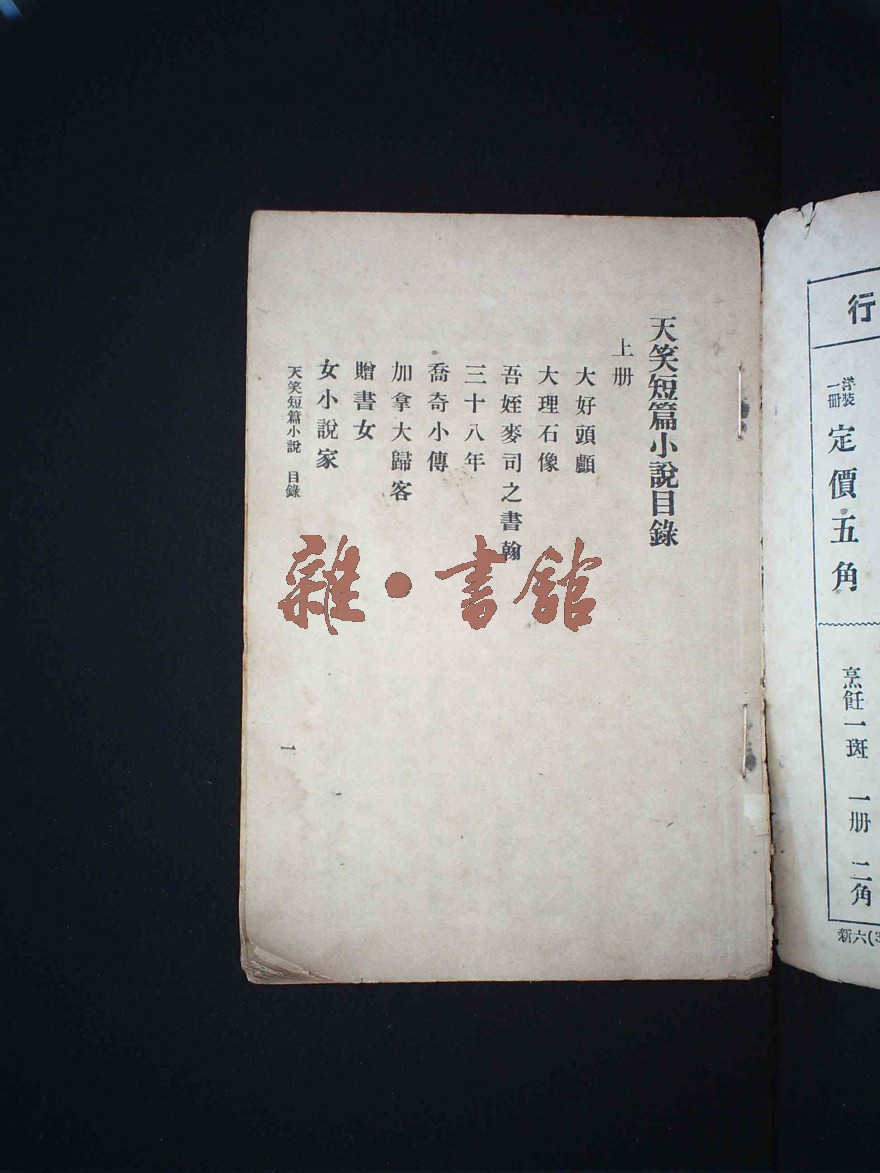 行
洋裝一冊 定價五角
烹飪一斑 一册 二角
新六(3
天笑短篇小說目錄
上册
大好頭顱
大理石像
吾姪麥司之書翰
三十八年
喬奇小傳
加拿大歸客
贈書女
女小說家
天笑短篇小說 目錄
一
雜·書館